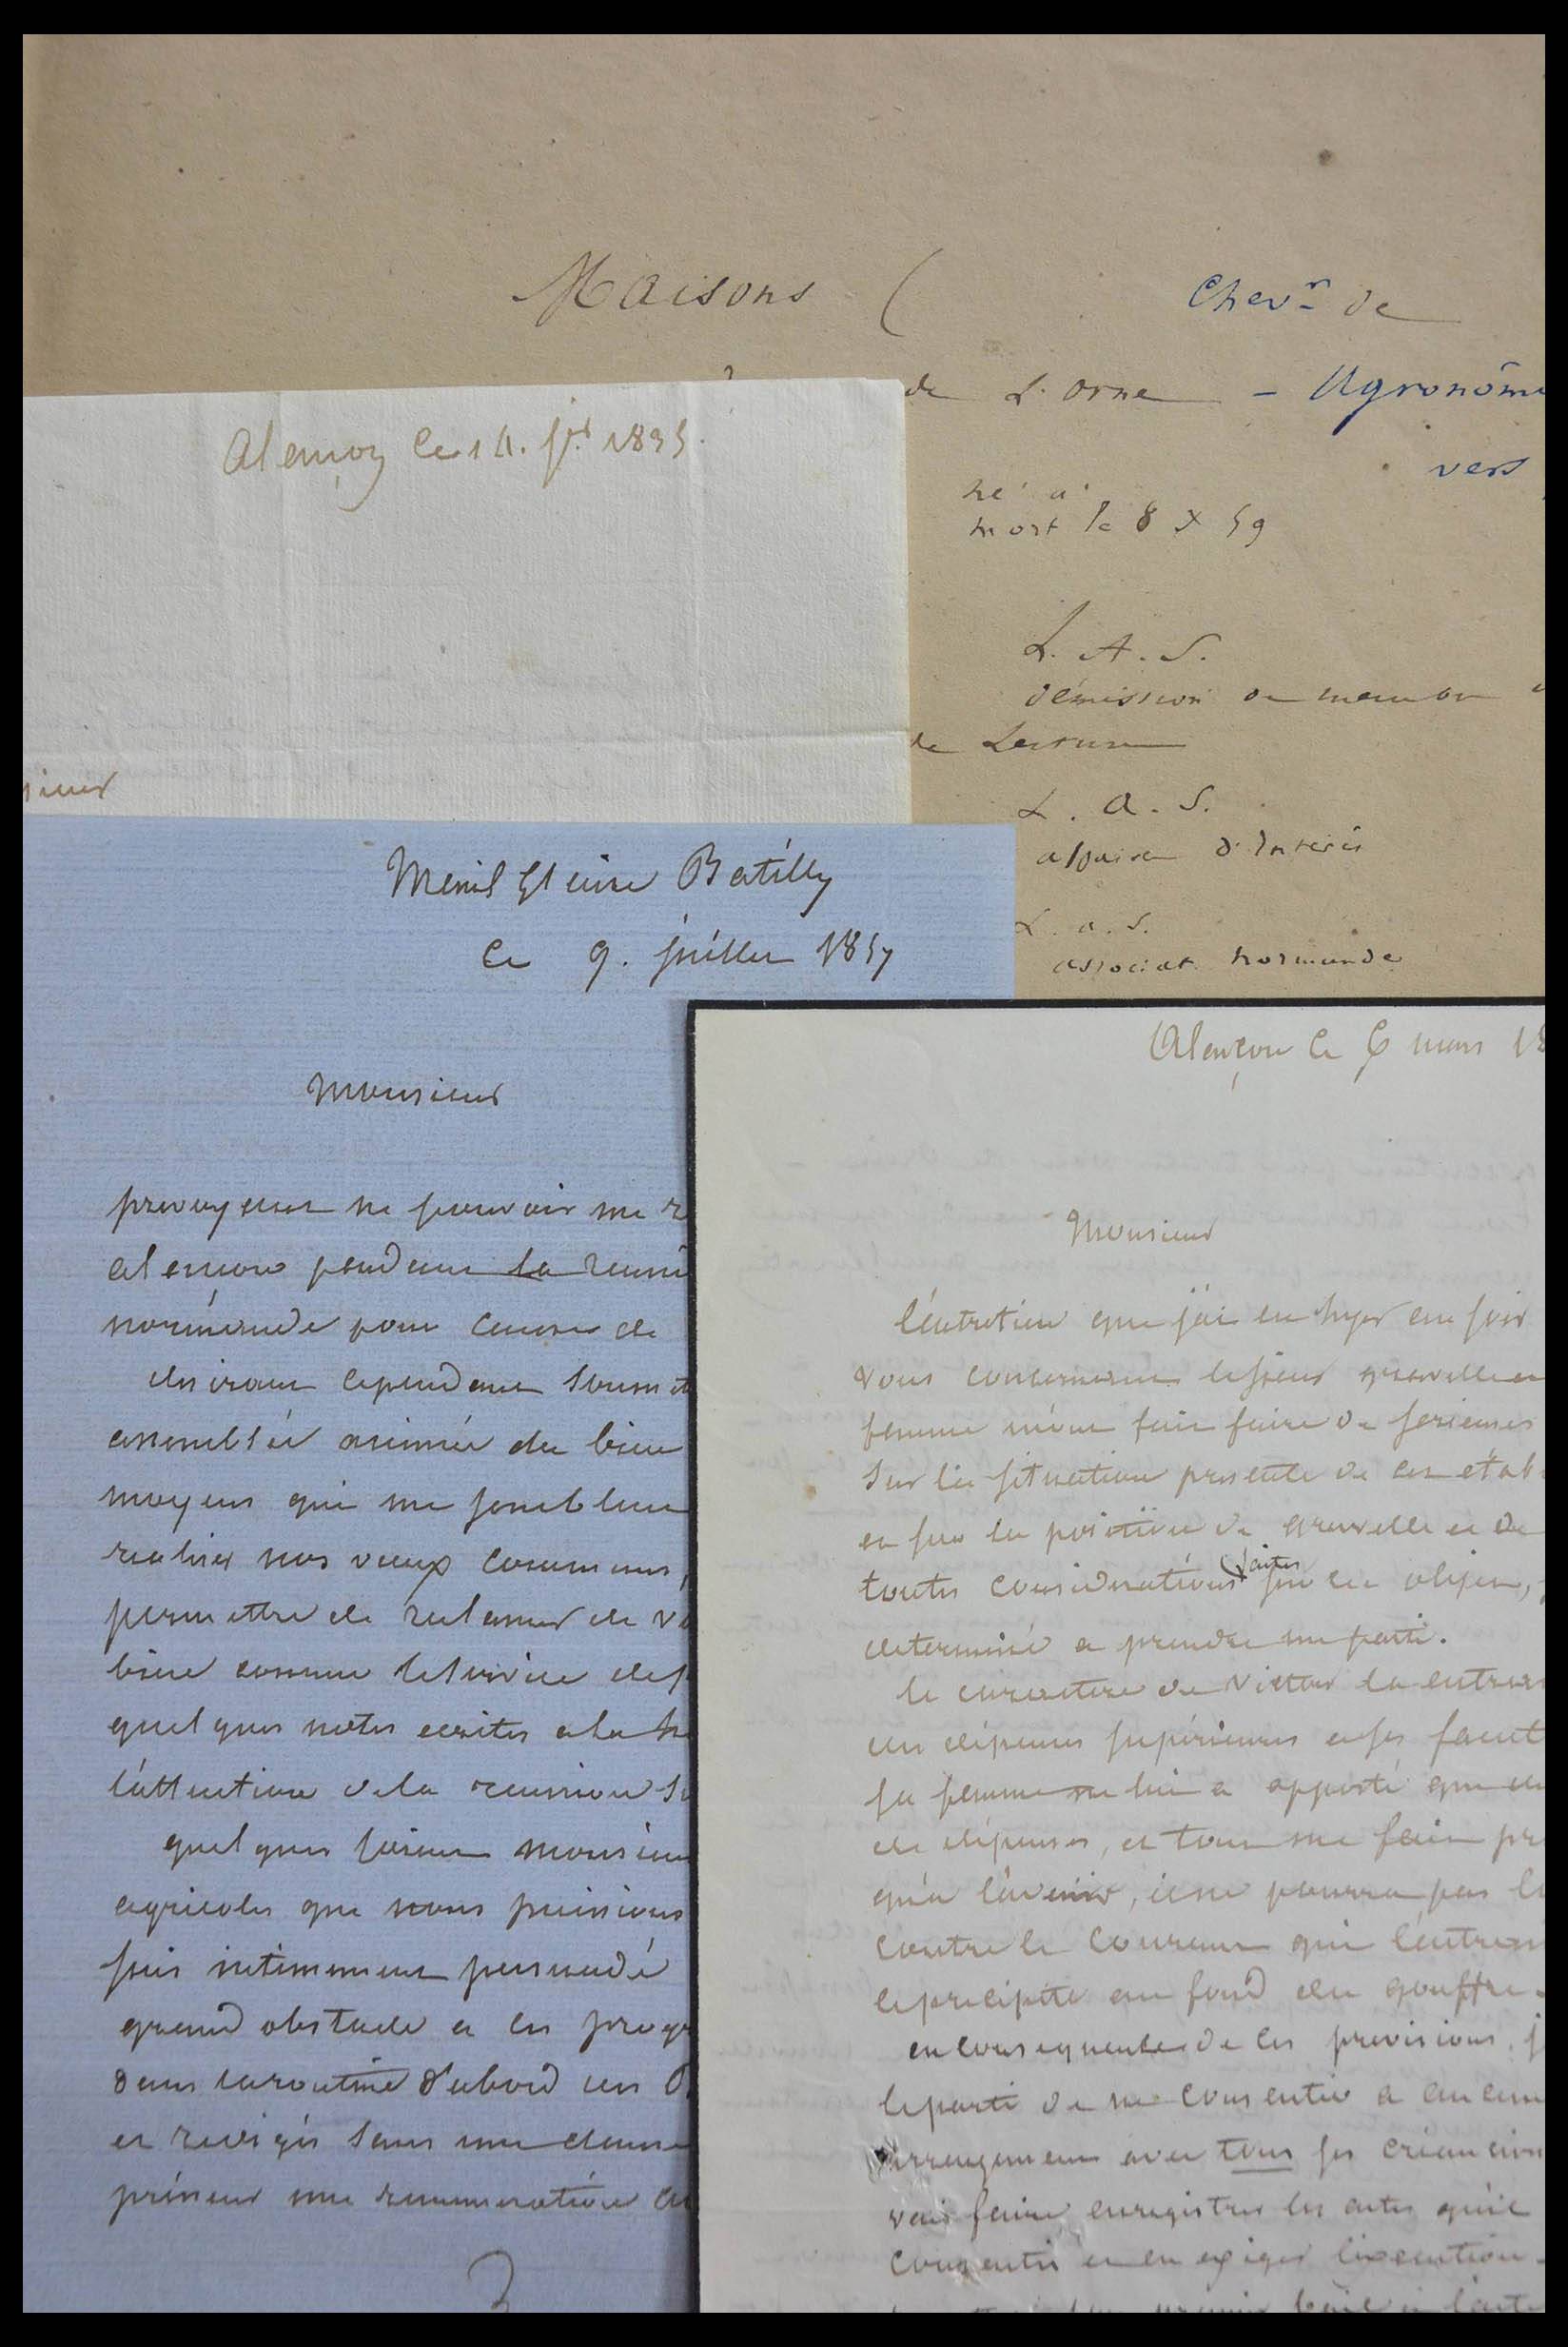 Maisons ( Chev.r de
de L'orne - Agronôme
vers
né à
mort le 8 X 59
L. A. S.
démission de membre
de Lecture
L. a. S.
affaire d'Interêt
L. a. S.
associat. normande
alençon le 14. 1835.
sieur
Menil Glaise Batilly
le 9. juillet 1857
Monsieur
prevoyant ne pouvoir me r
alençon pendant la reuni
normande pour cause de
desirant cependant soumet
assemblée animée du bien
moyens qui me semblent
realiser nos vœux communs,
permettre de reclamer de vo
bien comme
quelques notes ecrites a la h
l'attention de la reunion
quelques soient monsieur
agricoles que nous puissions
suis intimement persuadé
grand obstacle a les progr
dans la routine d'abord
et redigés sans une
preneur une remuneration
Alençon le 6 mars 18
Monsieur
l'entretien que j'ai eu hyer au soir
vous concernant le sieur gravelle et
femme m'ont fait faire de serieuses
sur la situation presente de cet étab
et sur la position de gravelle et de
toutes considerations faites sur cet objet,
determiné a prendre un parti.
le caractere de Victor la entrai
des depenses superieures a ses facult
sa femme ne lui a apporté que de
de depenses, et tout me fait pr
qu'a l'avenir, il ne pourra pas
contre le courant qui l'entrain
le precipite au fond du gouffre.
en consequence de ces previsions, j
le parti de ne consentir a aucun
arrangement avec tous ses creanciers
vais faire enregistrer les actes qu'il
consentis et en exiger l'execution